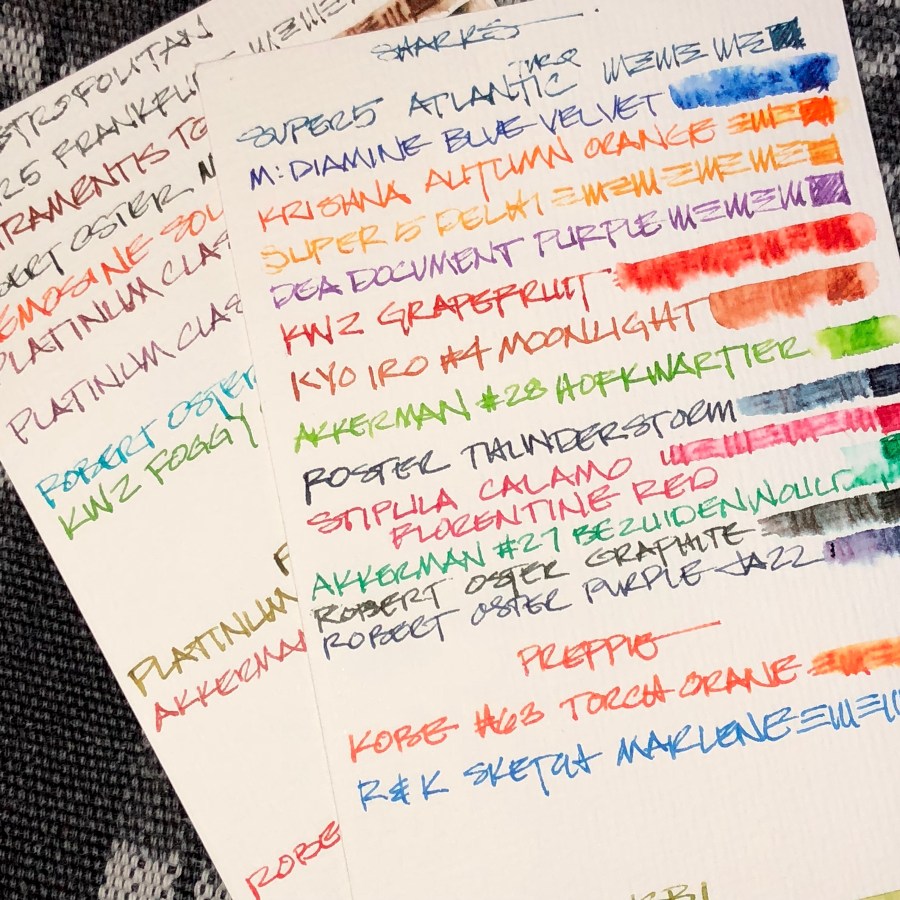 SHARKS
SUPER5 ATLANTIC
M: DIAMINE BLUE VELVET
KRISHNA AUTUMN ORANGE
SUPER 5 DELHI
DEA DOCUMENT PURPLE
KWZ GRAPEFRUIT
KYO IRO #4 MOONLIGHT
AKKERMAN #28 HOFKWARTIER
ROSTER THUNDERSTORM
STIPULA CALAMO
FLORENTINE RED
AKKERMAN #27 BEZUIDENWOUT
ROBERT OSTER GRAPHITE
ROBERT OSTER PURPLE JAZZ
PREPPIE
KOBE #63 TORCH ORANE
R&K SKETCH MARLENE
TROPOLITAN
R5 FRANKFU
TRAMENTIS TE
BERT OSTER N
EMOSINE SOL
PLATINUM CLAS
PLATINUM CLAS
ROBERT OSTER
KWZ FOGGY
PLATINUM
AKKERMA
ROBE